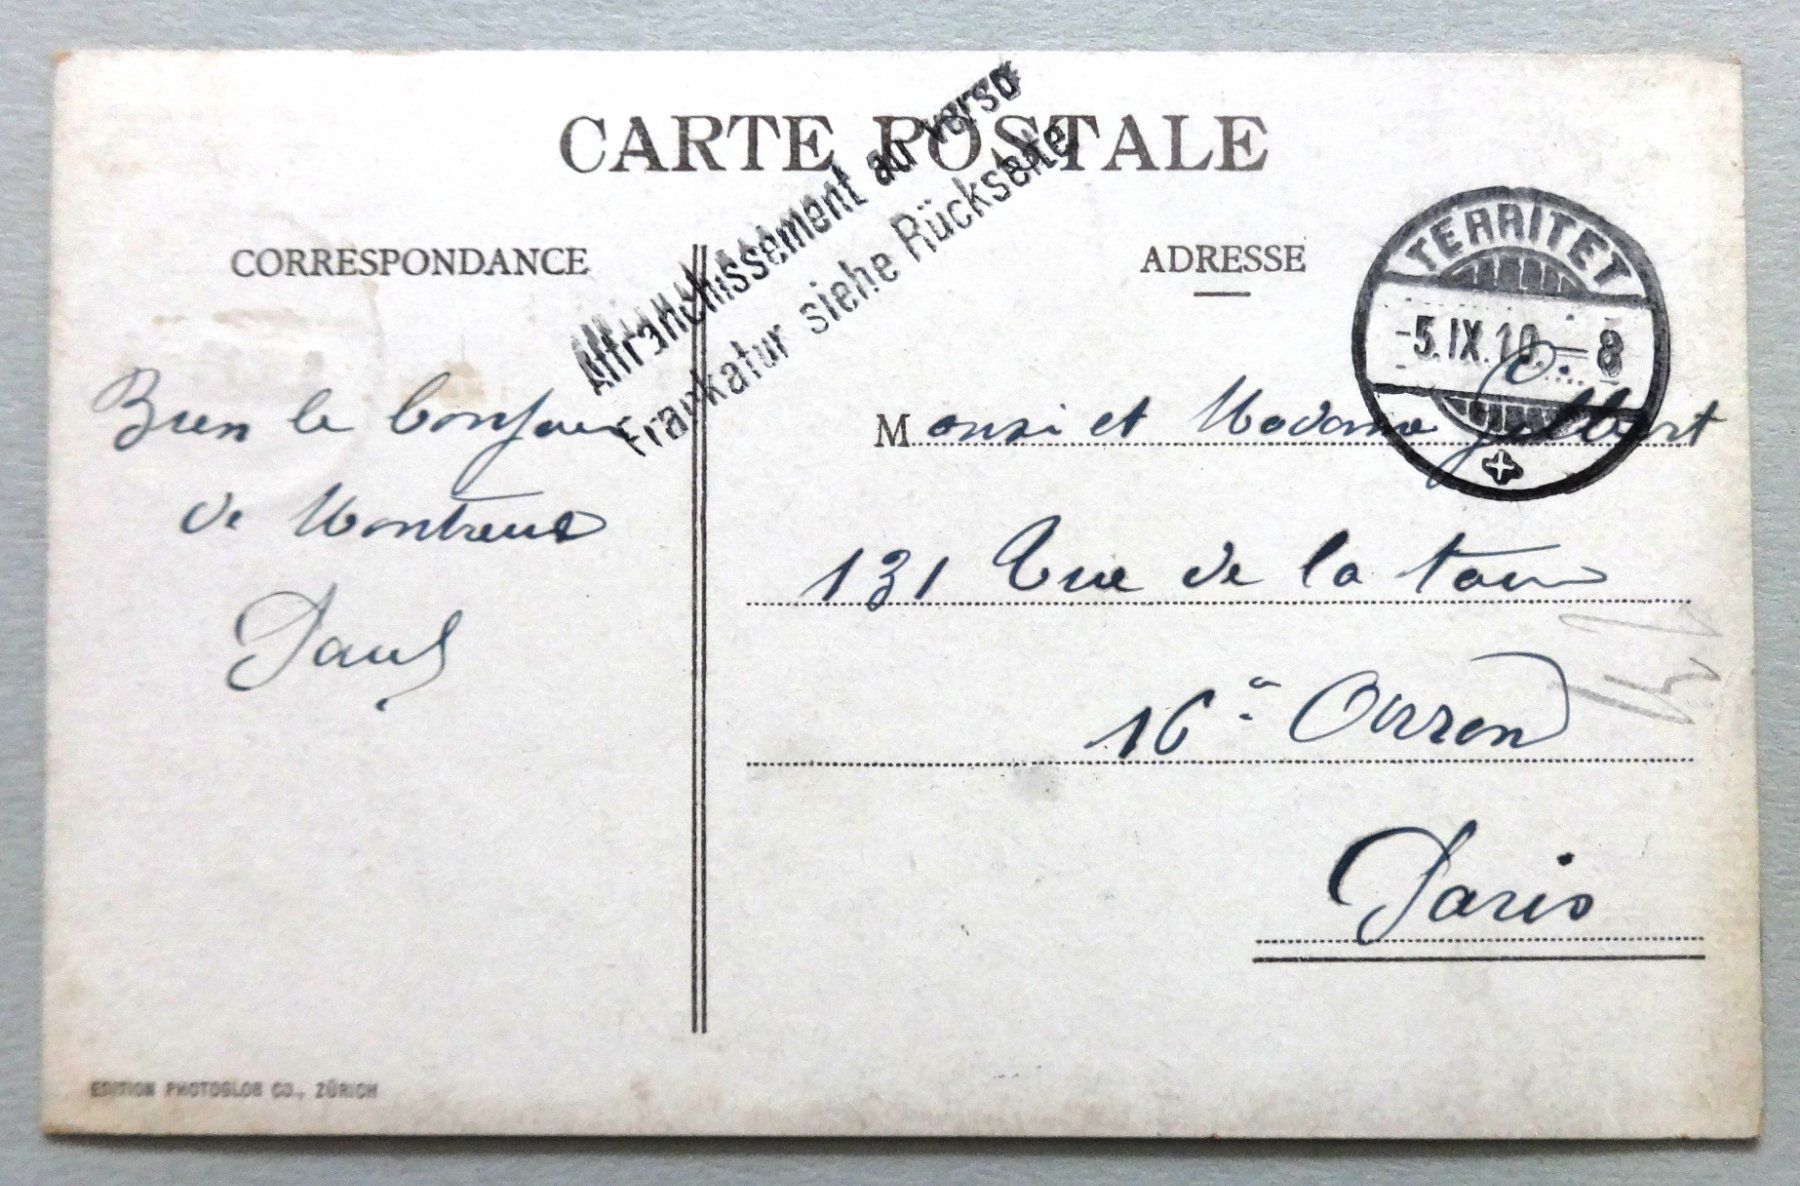 CARTE POSTALE
Affranchissement au verso
Frankatur siehe Rückseite
CORRESPONDANCE
Bien le bonjour
de Montreux
Paul
EDITION PHOTOGLOB CO., ZÜRICH
ADRESSE
TERRITET
-5.IX.10.-8
Monsi et Madame Gilbert
131 Rue de la tour
16e Arron
Paris